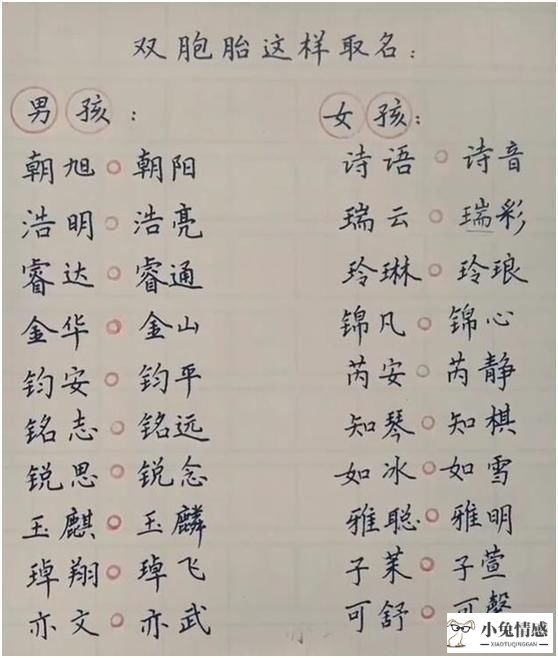 双胞胎这样取名:
男孩:
朝旭○朝阳
浩明○浩亮
睿达○睿通
金华○金山
钧安○钧平
铭志○铭远
锐思○锐念
玉麒○玉麟
琸翔○琸飞
亦文○亦武
女孩:
诗语○诗音
瑞云○瑞彩
玲琳○玲琅
锦凡○锦心
芮安○芮静
知琴○知棋
如冰○如雪
雅聪○雅明
子茉○子萱
可舒○可馨
小兔情感
XIAOTUQINGGAN